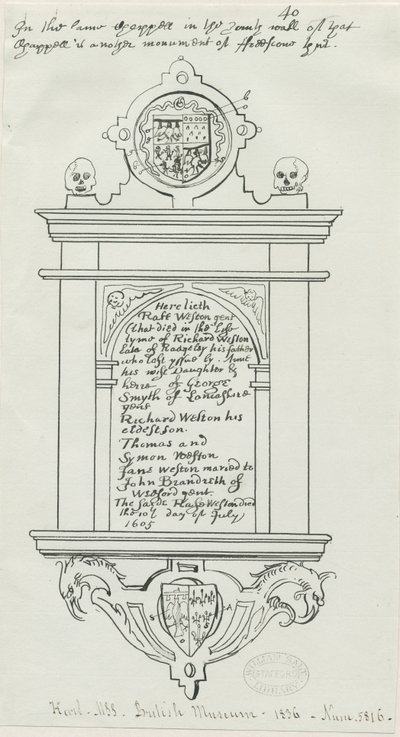 40
In the same Chappell in the South wall of that
Chappell is another monument of freescone
Here lieth
Raff Weston gent
(that died in the life
tyme of Richard Weston
late of Rudgeley his father
who left yssue by Anne
his wife Daughter &
heire of George
Smyth of Lancashire
gent
Richard Weston his
eldest son.
Thomas and
Symon Weston
Jane Weston maried to
John Brandreth of
Weeford gent.
The sayde Raffe Weston died
the 10th day of July
1605
S
A
S
WILLIAM SALT
STAFFORD
LIBRARY
Harl. MSS. British Museum - 1836 - Num. 5816 -